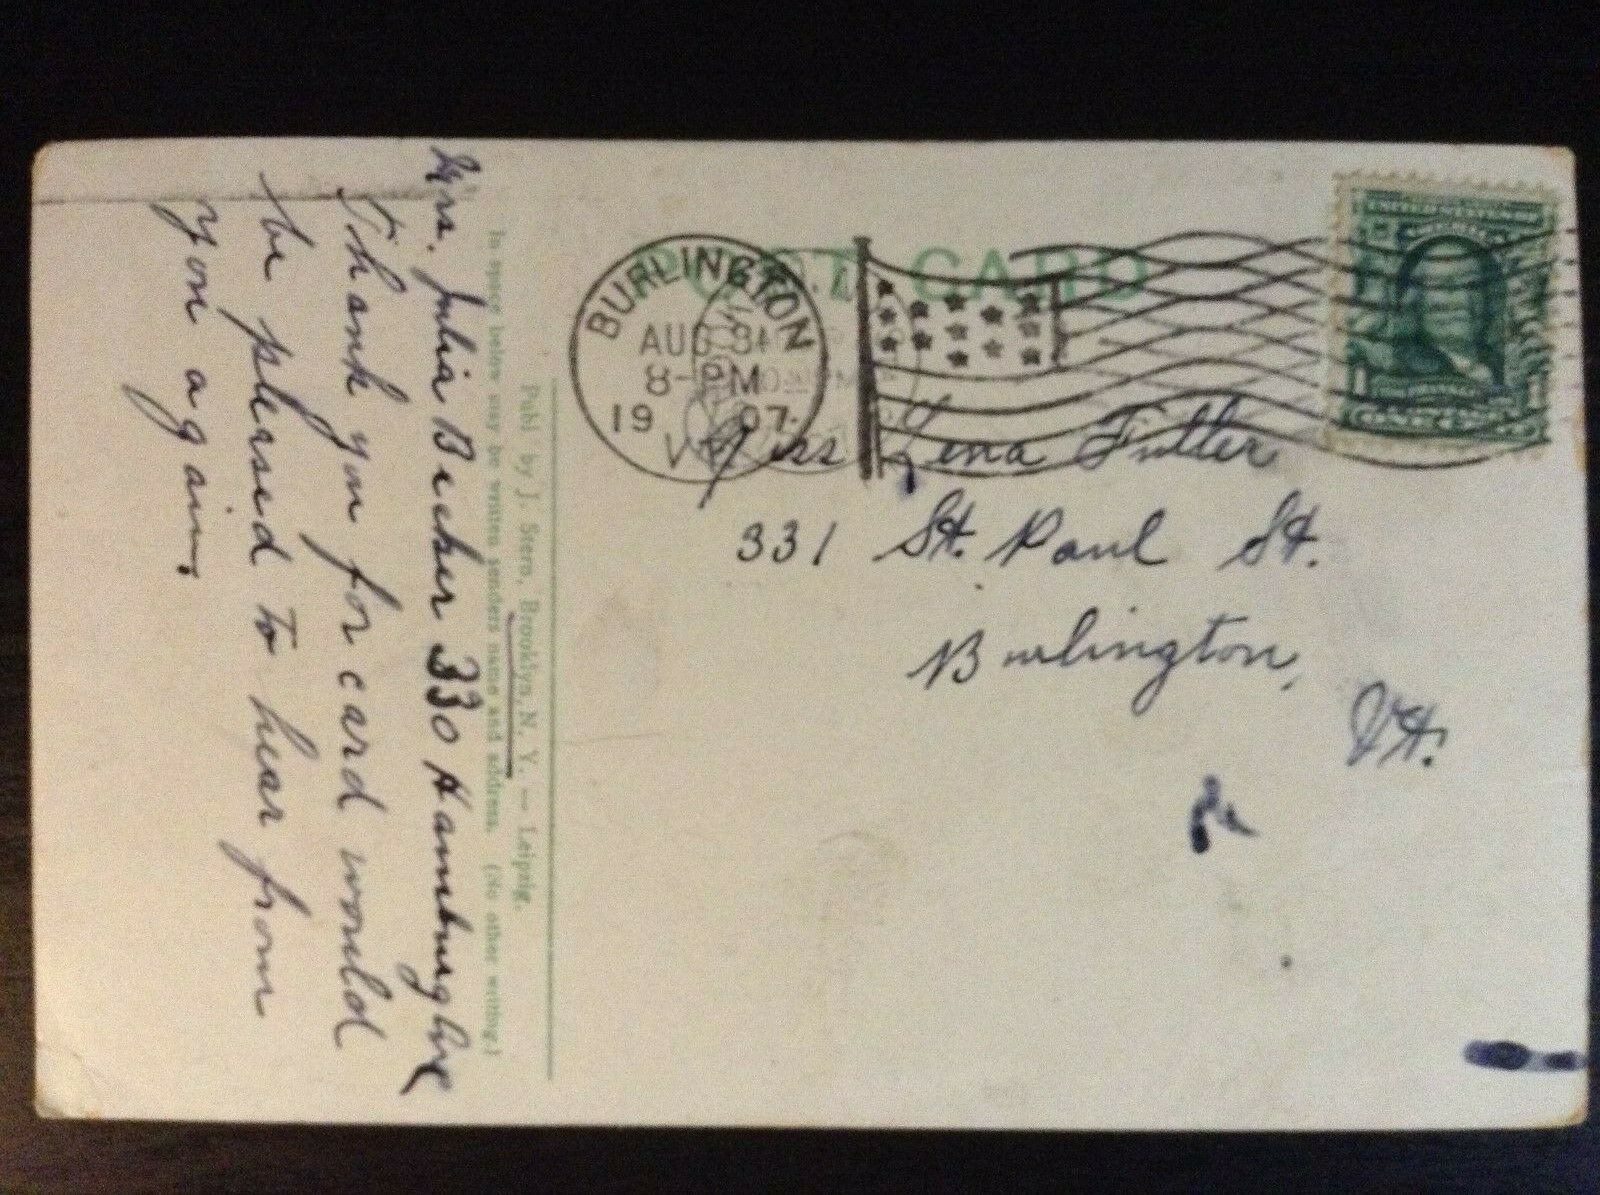 POST CARD
BURLINGTON
AUG 31
8-PM
1907
VT.
ONE
1 1
Miss Lena Fuller
331 St. Paul St.
Burlington,
Vt.
Publ. by J. Stern, Brooklyn, N. Y. — Leipzig.
In space below may be written senders name and address. (No other writing.)
Mrs. Julia Becker 330 Hamburg Ave
Thank you for card would
be plersed to hear from
you again.